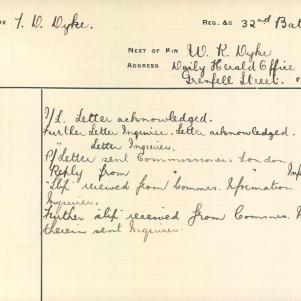 E T. D. Dyke. REG. &c 32nd Bat
NEXT OF KIN W. R. Dyke
ADDRESS Daily Herald Office
Grenfell Street. "
I/L. Letter acknowledged.
Further Letter Inquirer. Letter acknowledged.
" Letter Inquirer.
P/Letter sent Commissioners London
Reply from " "
"Slip" received from Commrs. Information
Inquirer.
Further slip received from Commrs.
therein sent Inquirer